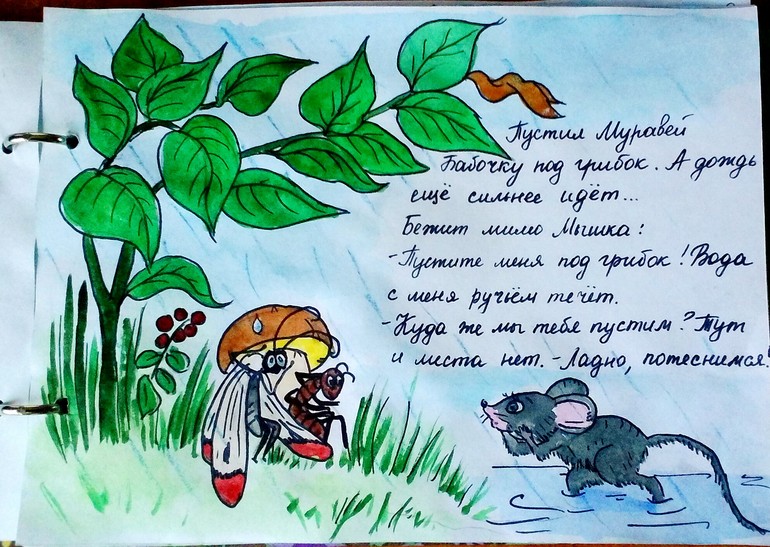 Пустил Муравей
Бабочку под грибок. А дождь
ещё сильнее идёт...
Бежит мимо Мышка:
-Пустите меня под грибок! Вода
с меня ручьём течёт.
-Куда же мы тебя пустим? Тут
и места нет. -Ладно, потеснимся!